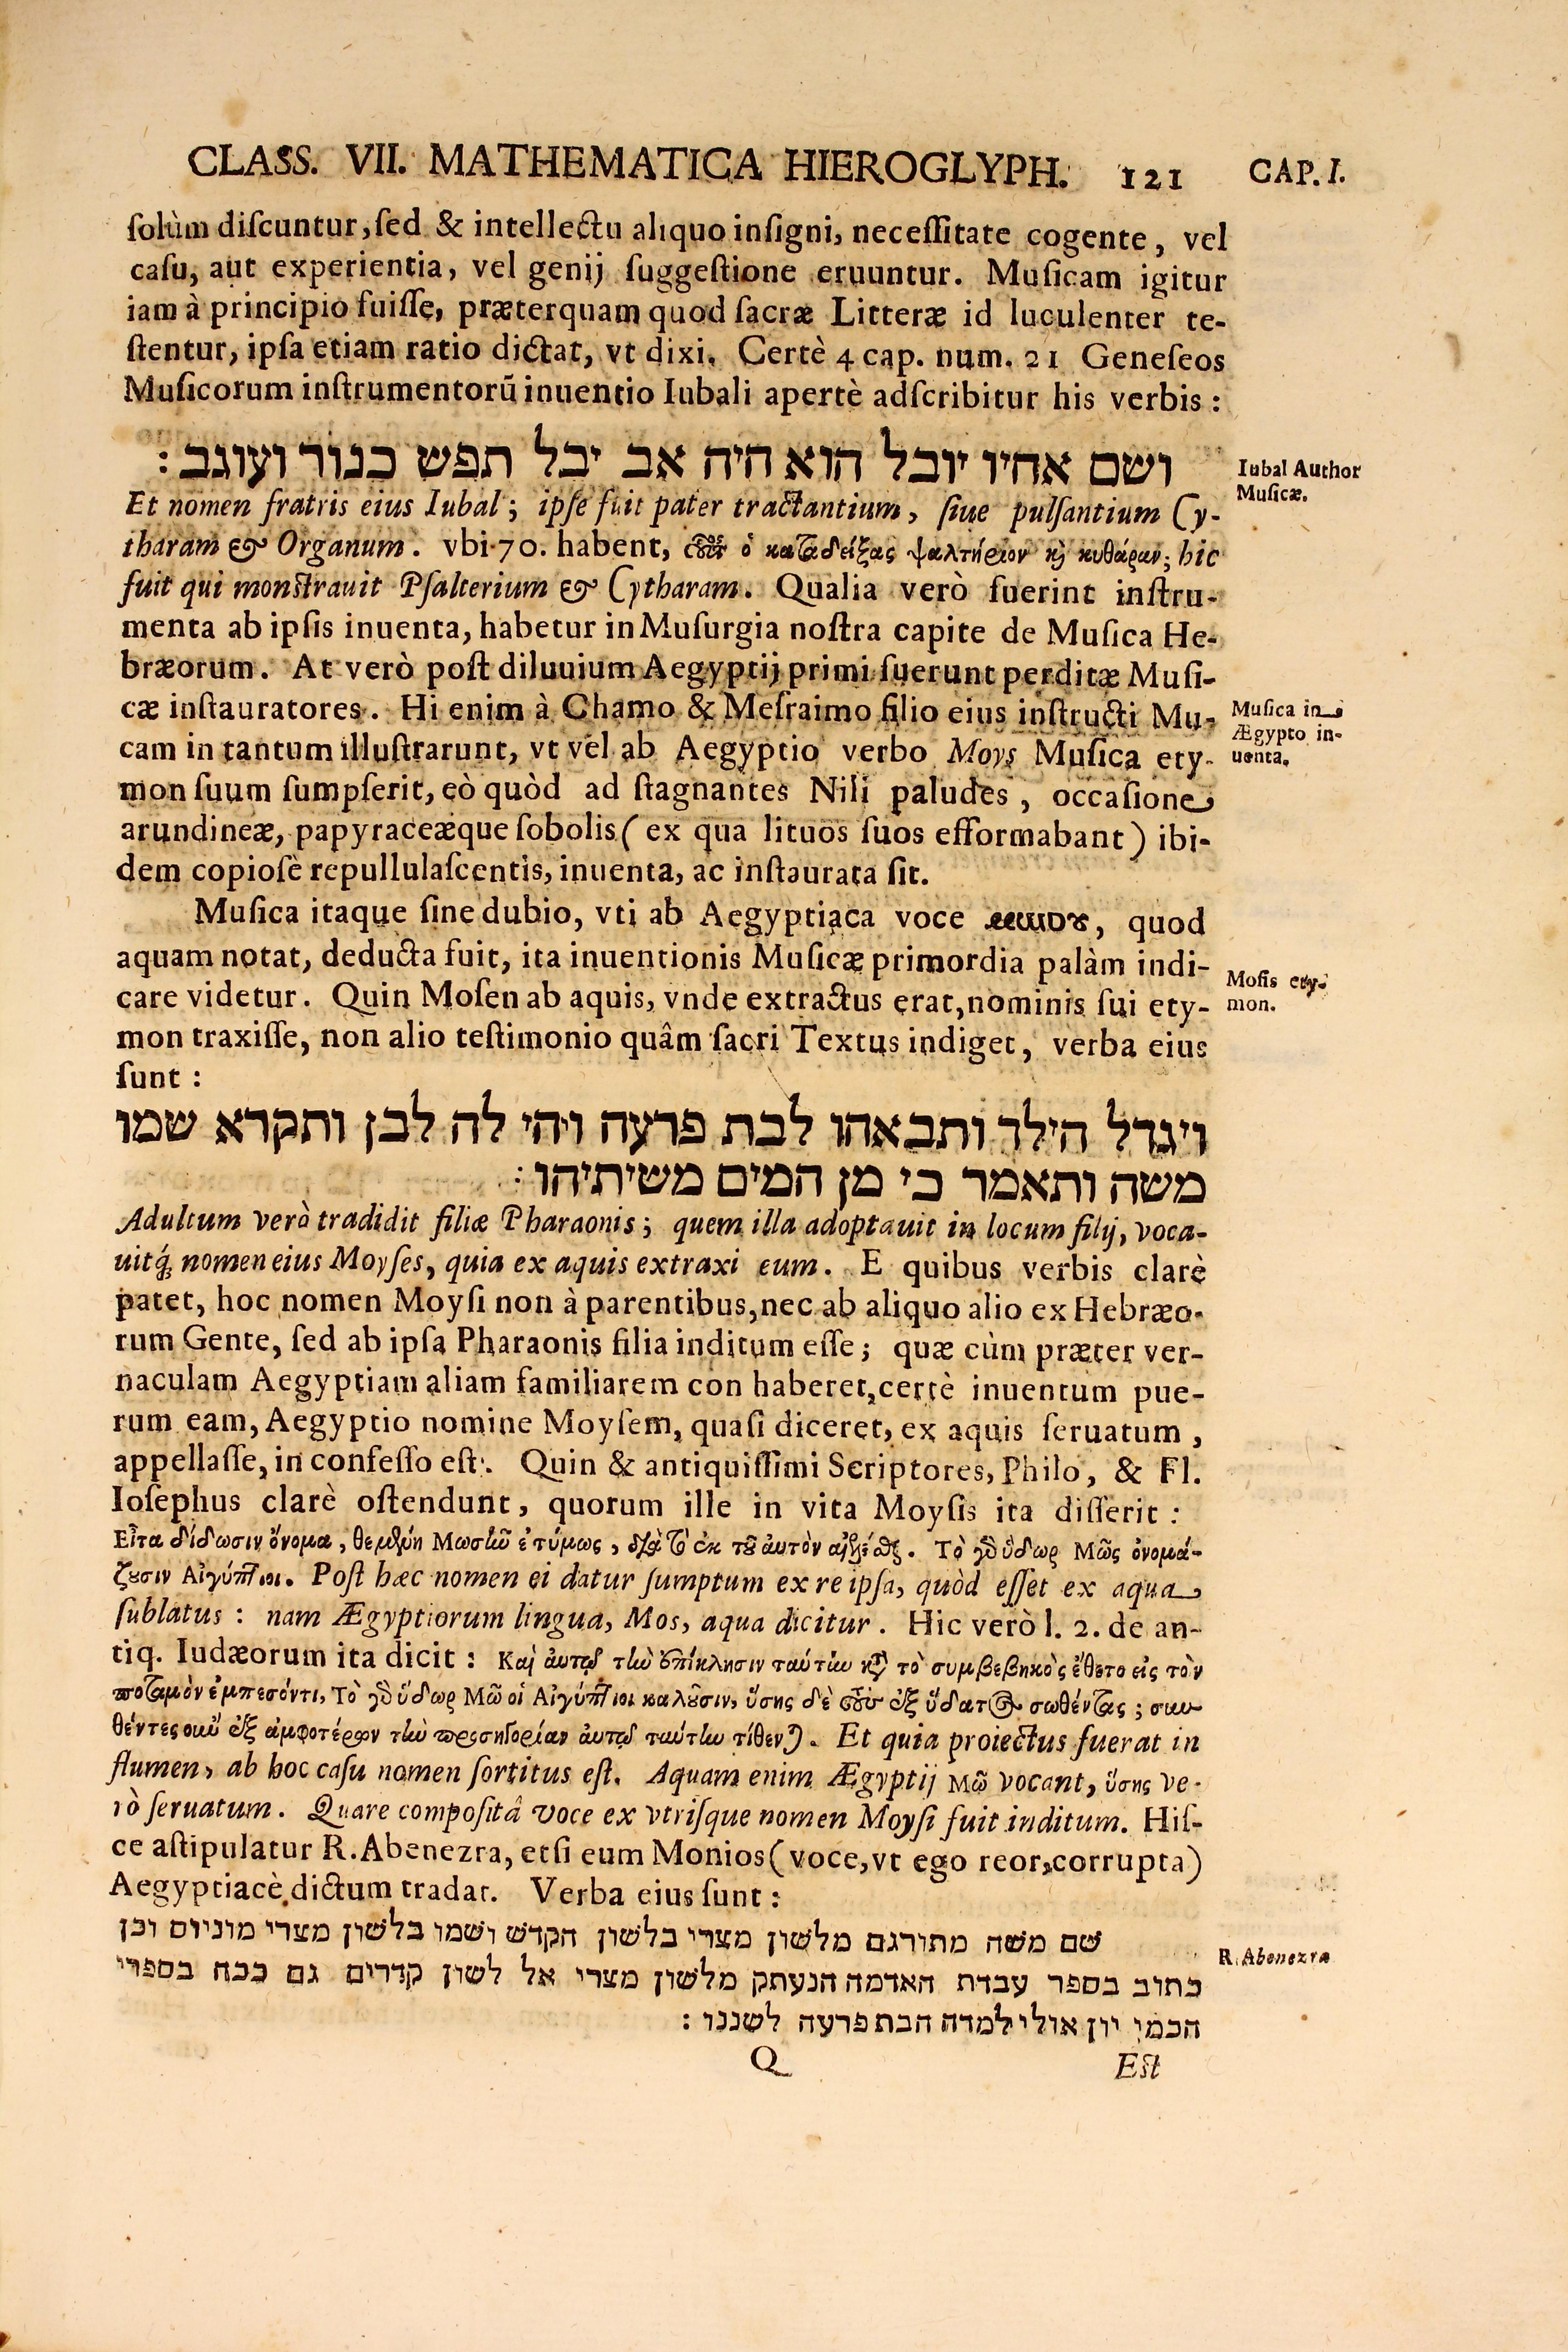 CLASS. VII. MATHEMATICA HIEROGLYPH. 121 CAP. I.
ſolùm diſcuntur, ſed & intellectu aliquo inſigni, neceſſitate cogente, vel
caſu, aut experientia, vel genij ſuggeſtione eruuntur. Muſicam igitur
iam à principio fuiſſe, præterquam quod ſacræ Litteræ id luculenter te-
ſtentur, ipſa etiam ratio dictat, vt dixi. Certè 4 cap. num. 21 Geneſeos
Muſicorum inſtrumentorū inuentio Iubali apertè adſcribitur his verbis :
ושם אחיו יובל הוא היה אב יבל תפש כנור ועוגב :
Iubal Author
Muſicæ.
Et nomen fratris eius Iubal ; ipſe fuit pater tractantium, ſiue pulſantium Cy-
tharam & Organum. vbi 70. habent, ὁ καταδείξας ψαλτήριον καὶ κυθάραν; hic
fuit qui monſtrauit Pſalterium & Cytharam. Qualia verò fuerint inſtru-
menta ab ipſis inuenta, habetur in Muſurgia noſtra capite de Muſica He-
bræorum. At verò poſt diluuium Aegyptij primi fuerunt perditæ Muſi-
cæ inſtauratores. Hi enim à Chamo & Meſraimo filio eius inſtructi Mu-
cam in tantum illuſtrarunt, vt vel ab Aegyptio verbo Moys Muſica ety-
mon ſuum ſumpſerit, eò quòd ad ſtagnantes Nili paludes, occaſione
arundineæ, papyraceæque ſobolis ( ex qua lituos ſuos efformabant ) ibi-
dem copioſè repullulaſcentis, inuenta, ac inſtaurata ſit.
Muſica in
Ægypto in-
uenta.
Muſica itaque ſine dubio, vti ab Aegyptiaca voce ⲙⲱⲟⲩ, quod
aquam notat, deducta fuit, ita inuentionis Muſicæ primordia palàm indi-
care videtur. Quin Moſen ab aquis, vnde extractus erat, nominis ſui ety-
mon traxiſſe, non alio teſtimonio quâm ſacri Textus indiget, verba eius
ſunt :
Moſis ety-
mon.
ויגדל הילד ותבאהו לבת פרעה ויהי לה לבן ותקרא שמו
משה ותאמר כי מן המים משיתיהו :
Adultum verò tradidit filiæ Pharaonis ; quem illa adoptauit in locum filij, voca-
uitq́; nomen eius Moyſes, quia ex aquis extraxi eum. E quibus verbis clarè
patet, hoc nomen Moyſi non à parentibus, nec ab aliquo alio ex Hebræo-
rum Gente, ſed ab ipſa Pharaonis filia inditum eſſe ; quæ cùm præter ver-
naculam Aegyptiam aliam familiarem con haberet, certè inuentum pue-
rum eam, Aegyptio nomine Moyſem, quaſi diceret, ex aquis ſeruatum,
appellaſſe, in confeſſo eſt. Quin & antiquiſſimi Scriptores, Philo, & Fl.
Ioſephus clarè oſtendunt, quorum ille in vita Moyſis ita diſſerit :
Εἶτα δίδωσιν ὄνομα, θεμένη Μωσῆν ἐτύμως, διὰ τὸ ἐκ τοῦ αὐτὸν. Τὸ γὰρ ὕδωρ Μῶς ὀνομά-
ζουσιν Αἰγύπτιοι. Poſt hæc nomen ei datur ſumptum ex re ipſa, quòd eſſet ex aqua
ſublatus : nam Ægyptiorum lingua, Mos, aqua dicitur. Hic verò l. 2. de an-
tiq. Iudæorum ita dicit : Καὶ αὐτῷ τὴν ἐπίκλησιν ταύτην κατὰ τὸ συμβεβηκὸς ἔθετο εἰς τὸν
ποταμὸν ἐμπεσόντι, Τὸ γὰρ ὕδωρ Μῶ οἱ Αἰγύπτιοι καλοῦσιν, ὕσης δὲ τοὺς ἐξ ὕδατος σωθέντας ; συν-
θέντες οὖν ἐξ ἀμφοτέρων τὴν προσηγορίαν αὐτῷ ταύτην τίθενται. Et quia proiectus fuerat in
flumen, ab hoc caſu nomen ſortitus eſt. Aquam enim Ægyptij Μῶ vocant, ὕσης ve-
rò ſeruatum. Quare compoſitâ voce ex vtriſque nomen Moyſi fuit inditum. Hiſ-
ce aſtipulatur R. Abenezra, etſi eum Monios ( voce, vt ego reor, corrupta )
Aegyptiacè dictum tradat. Verba eius ſunt :
שם משה מתורגם מלשון מצרי בלשון הקדש ושמו בלשון מצרי מוניוס וכן
כתוב בספר עבדת האדמה הנעתק מלשון מצרי אל לשון קדרים גם ככה בספרי
הכמי יון אולי למדה הבת פרעה לשננו :
R. Abenezra
Q Eſt